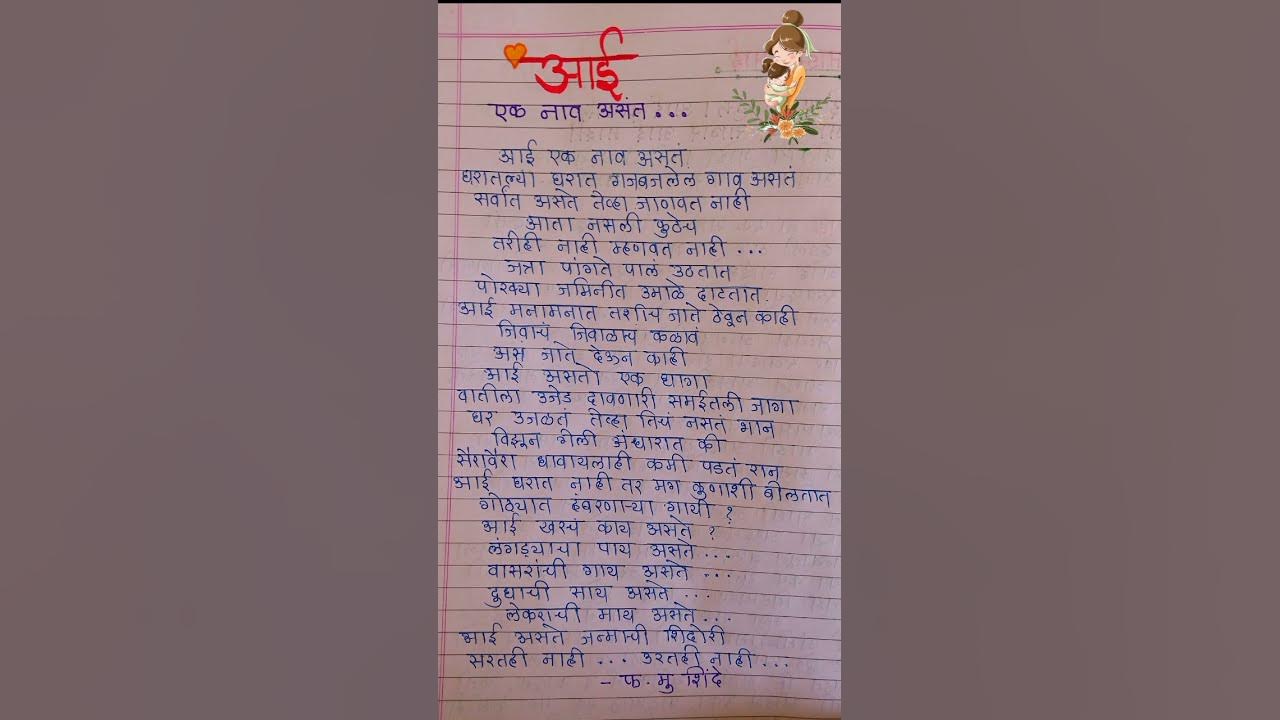 आई
एक नाव असंत...
आई एक नाव असतं
घरातल्या घरात गजबजलेलं गाव असतं
सर्वात असते तेव्हा जाणवत नाही
आता नसली कुठेच
तरीही नाही म्हणवत नाही ...
जत्रा पांगते पालं उठतात
पोरक्या जमिनीत उमाळे दाटतात.
आई मनामनात तशीच जाते ठेवून काही
जिवाचं जिवालाच कळावं
असं जाते देऊन काही
आई असतो एक धागा
वातीला उजेड दावणारी समईतली जागा
घर उजळतं तेव्हा तिचं नसतं भान
विझून गेली अंधारात की
सैरावैरा धावायलाही कमी पडतं रान
आई घरात नाही तर मग कुणाशी बोलतात
गोठ्यात हंबरणाऱ्या गायी ?
आई खरचं काय असते ?
लंगड्याचा पाय असते ...
वासरांची गाय असते ...
दुधाची साय असते ...
लेकराची माय असते ...
आई असते जन्माची शिदोरी
सरतही नाही ... उरतही नाही ...
- फ. मु शिंदे